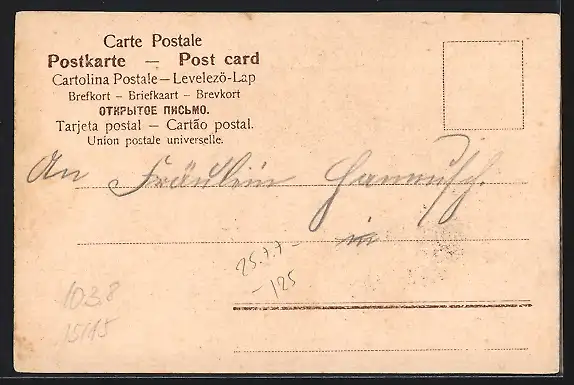 Carte Postale
Postkarte — Post card
Cartolina Postale — Levelező-Lap
Brefkort – Briefkaart – Brevkort
ОТКРЫТОЕ ПИСЬМО.
Tarjeta postal — Cartão postal.
Union postale universelle.
An Fräulein Hannusch.
in
25.7.7 -
- 125
1038
15/15